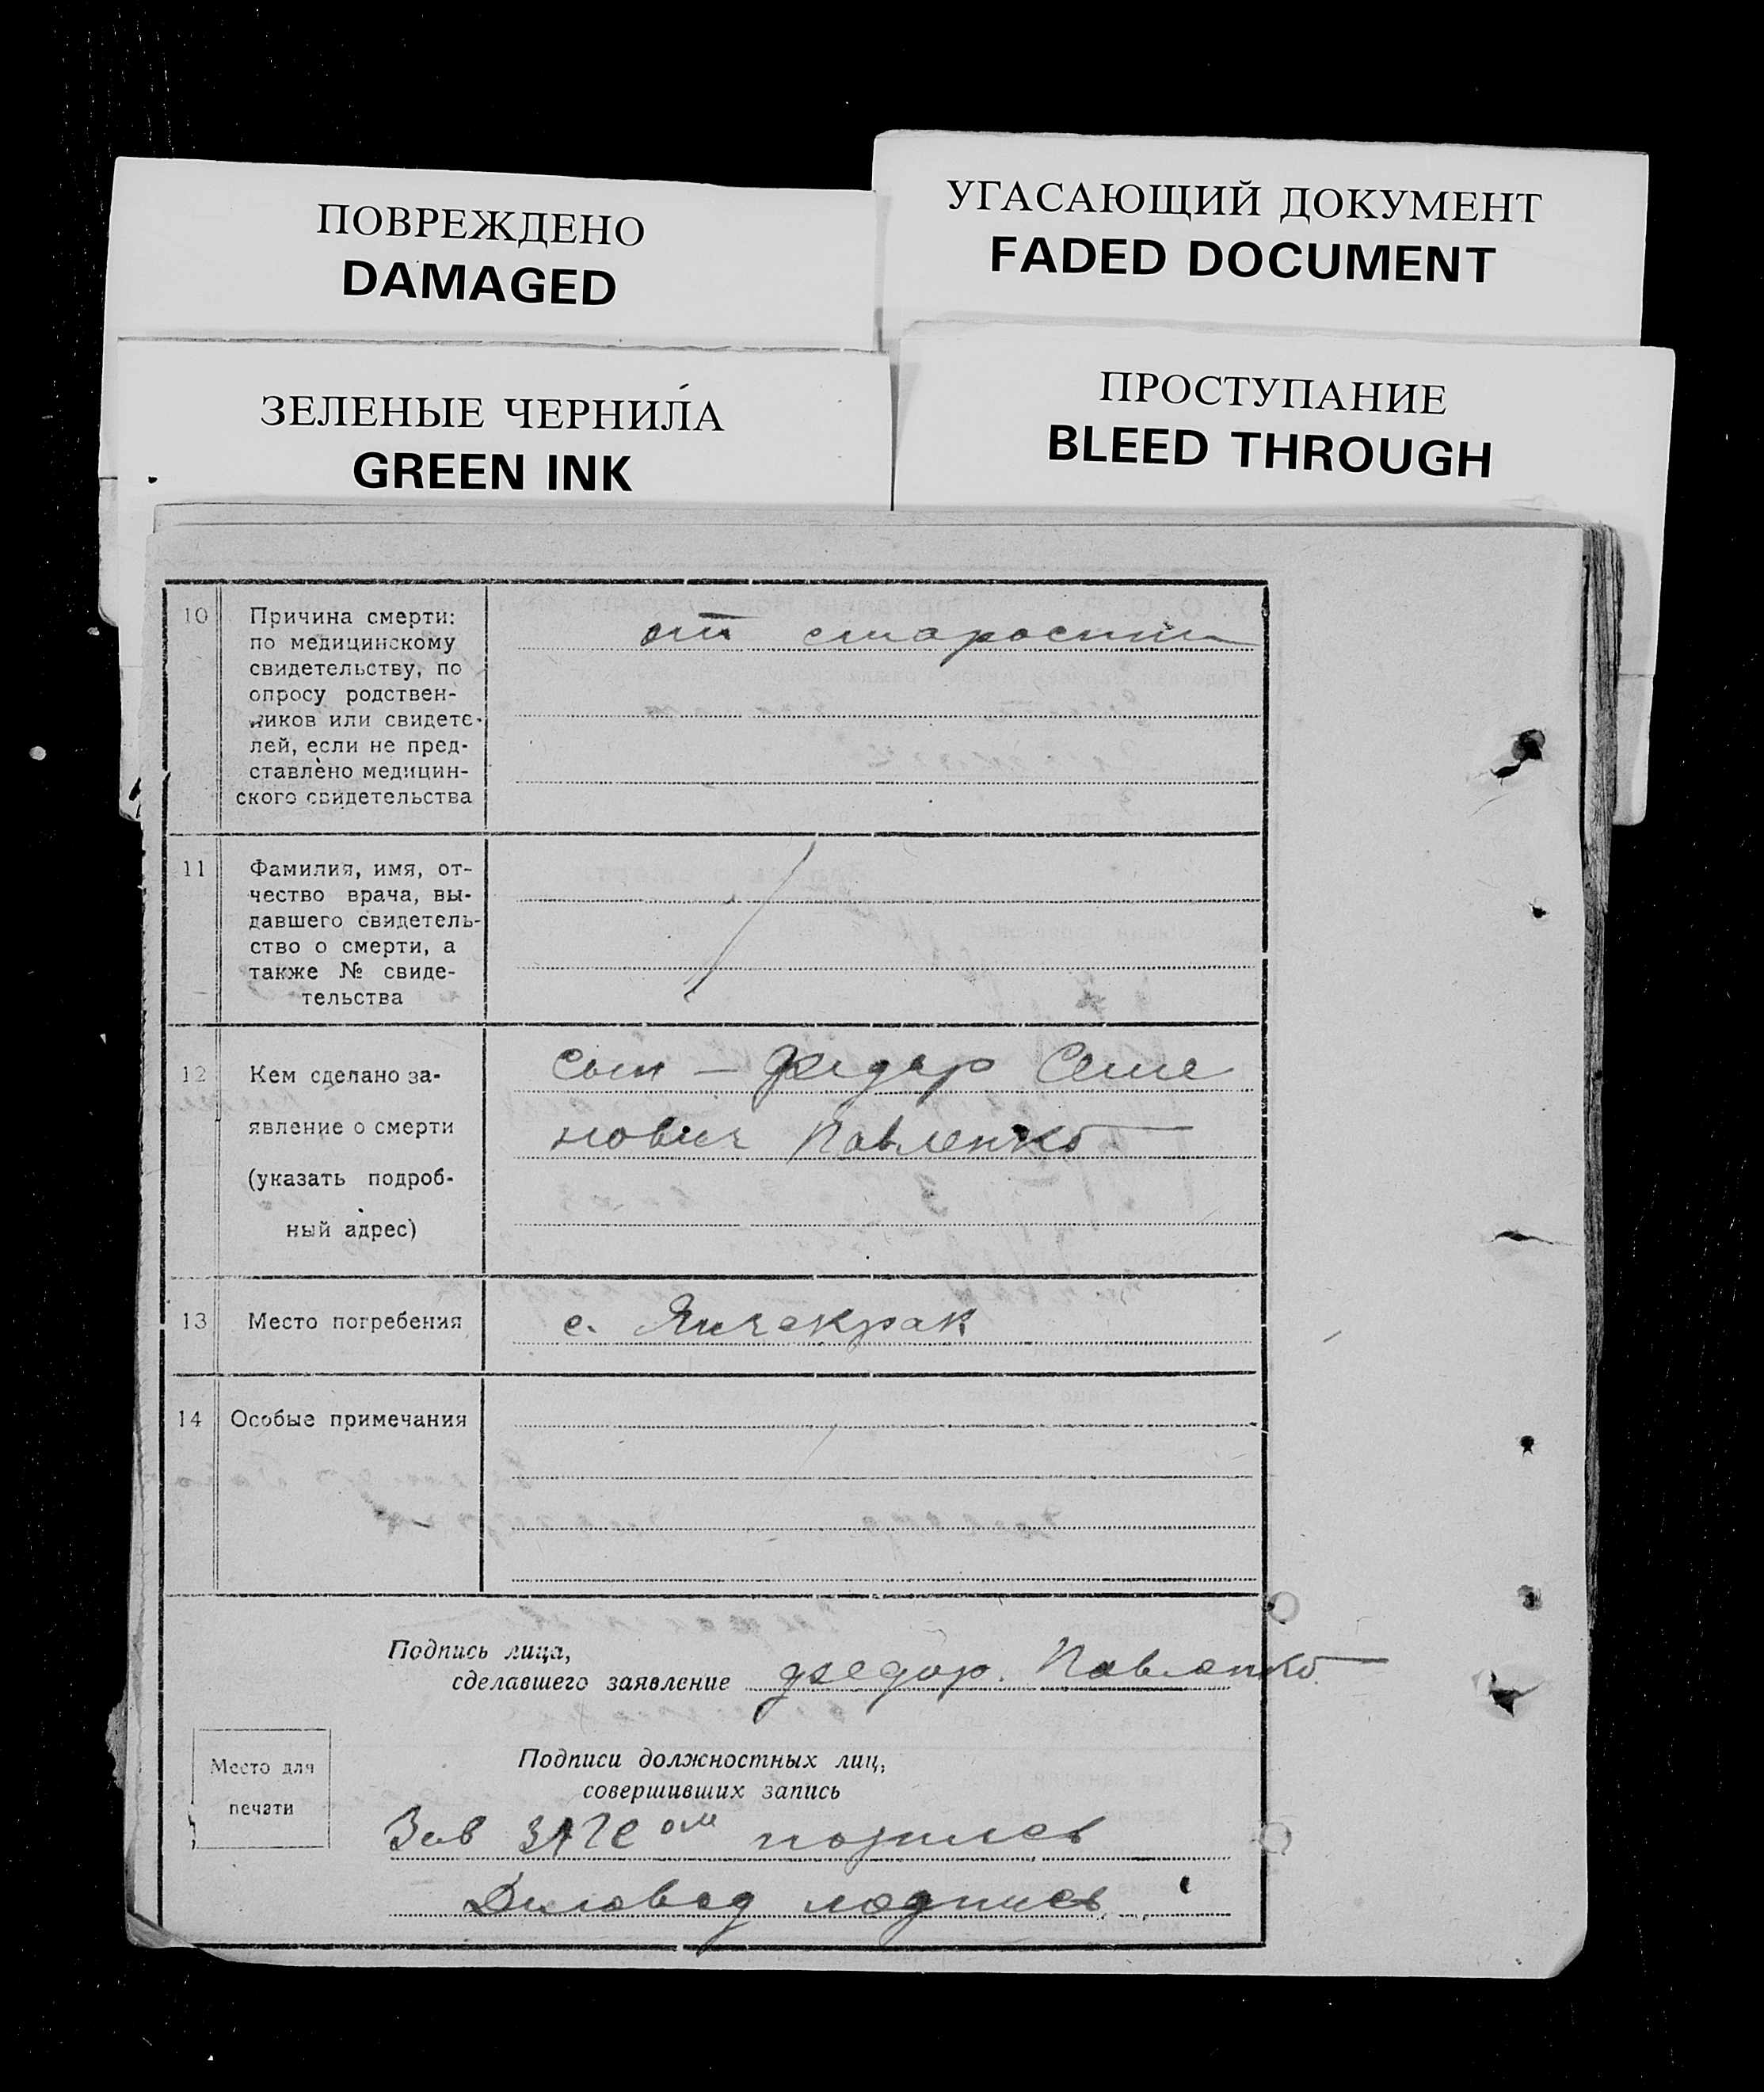 ПОВРЕЖДЕНО
DAMAGED
УГАСАЮЩИЙ ДОКУМЕНТ
FADED DOCUMENT
ЗЕЛЕНЫЕ ЧЕРНИЛА
GREEN INK
ПРОСТУПАНИЕ
BLEED THROUGH
10
Причина смерти:
по медицинскому
свидетельству, по
опросу родствен-
ников или свидете-
лей, если не пред-
ставлено медицин-
ского свидетельства
от старости
11
Фамилия, имя, от-
чество врача, вы-
давшего свидетель-
ство о смерти, а
также № свиде-
тельства
12
Кем сделано за-
явление о смерти
(указать подроб-
ный адрес)
Сын — Федор Семе
нович Павленко
13
Место погребения
с. Янчекрак
14
Особые примечания
Подпись лица,
сделавшего заявление
Федор. Павленко
Место для
печати
Подписи должностных лиц,
совершивших запись
Зав ЗАГСом подпись
Диловод подпись